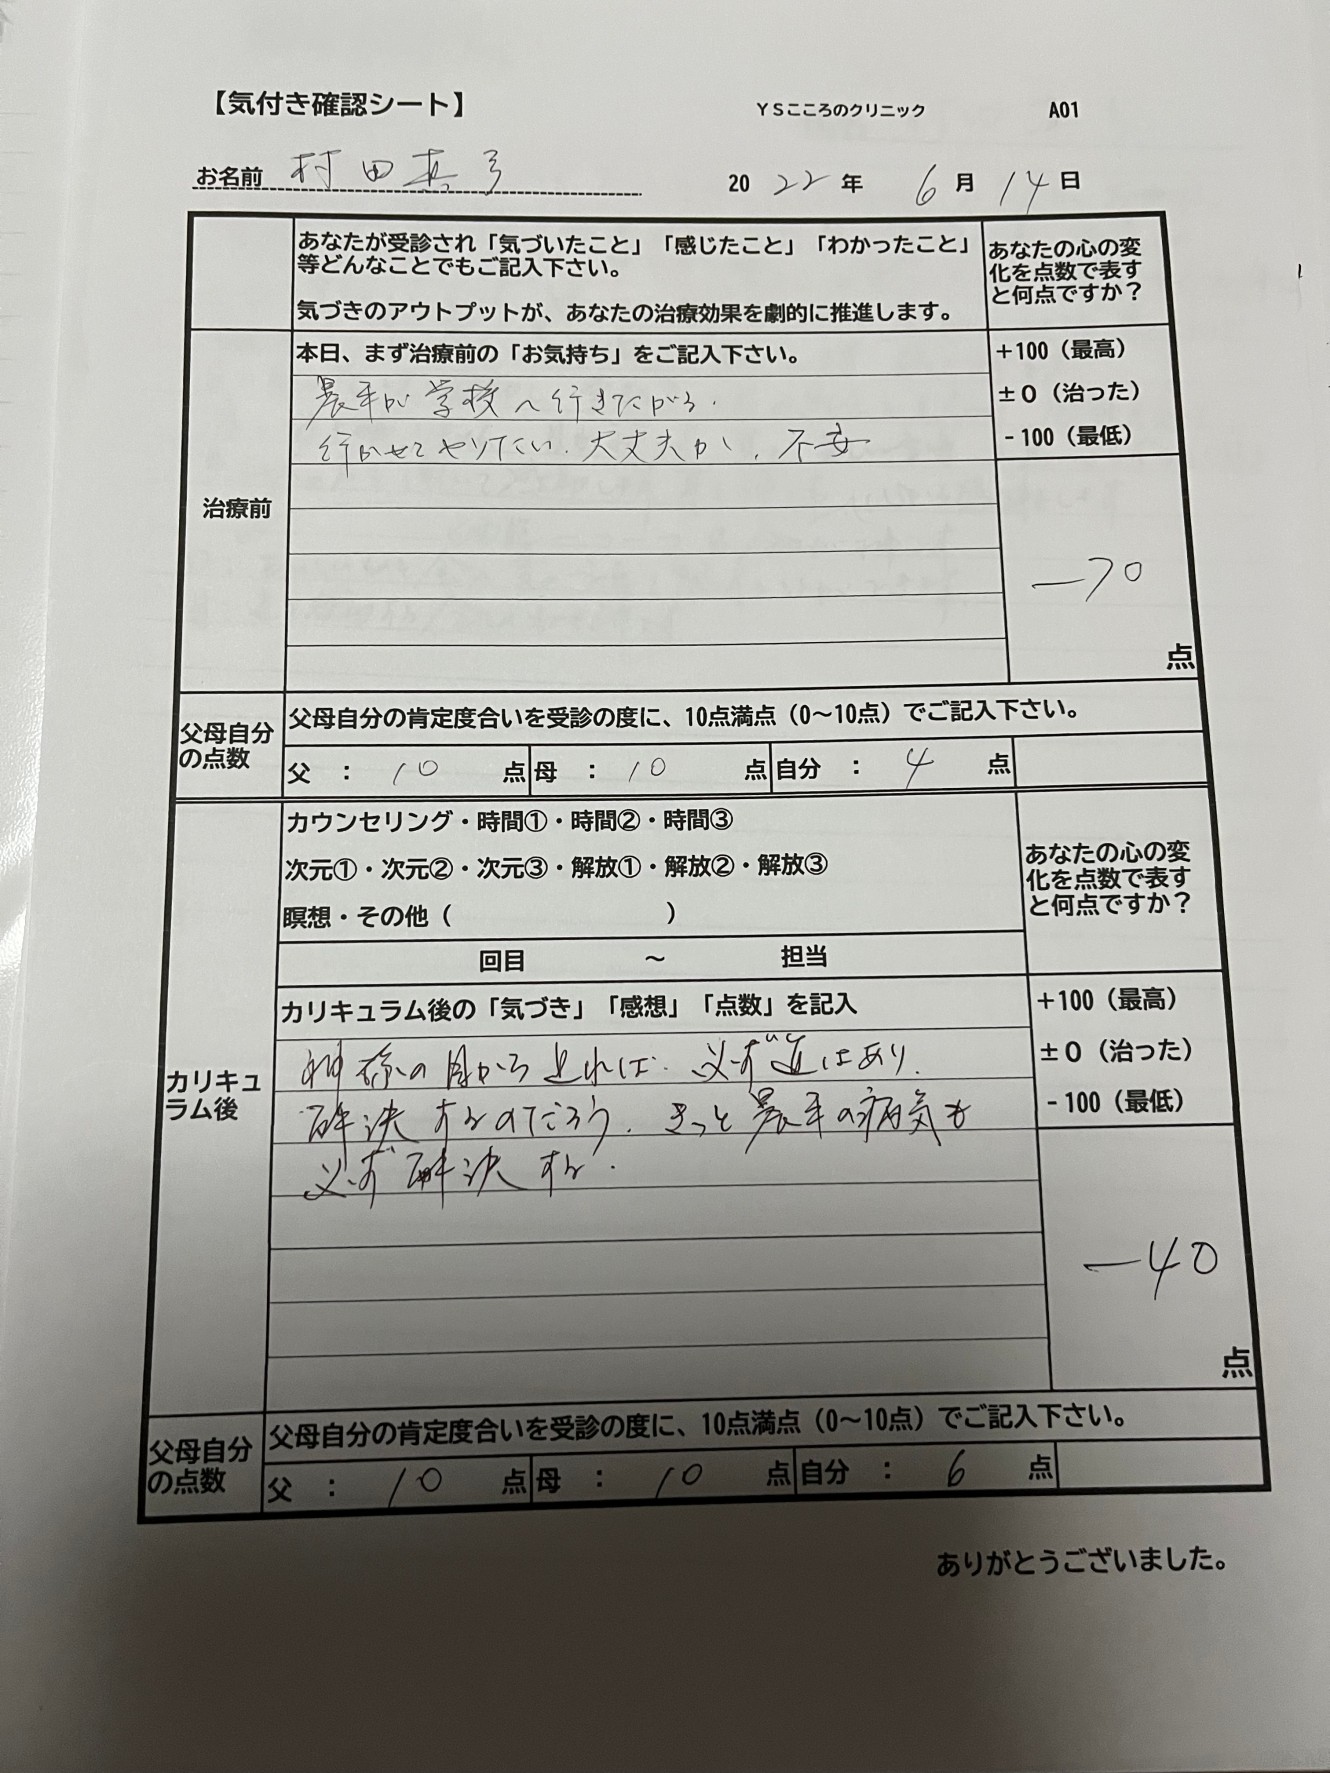 【気付き確認シート】 YSこころのクリニック A01
お名前 村田真弓 2022年 6月14日
あなたが受診され「気づいたこと」「感じたこと」「わかったこと」
等どんなことでもご記入下さい。
気づきのアウトプットが、あなたの治療効果を劇的に推進します。
あなたの心の変
化を点数で表す
と何点ですか？
治療前
本日、まず治療前の「お気持ち」をご記入下さい。
晨平が学校へ行きたがる.
行かせてやりたい.大丈夫か.不安
+100（最高）
±0（治った）
-100（最低）
-70
点
父母自分
の点数
父母自分の肯定度合いを受診の度に、10点満点（0～10点）でご記入下さい。
父 ： 10 点 母 ： 10 点 自分 ： 4 点
カリキュ
ラム後
カウンセリング・時間①・時間②・時間③
次元①・次元②・次元③・解放①・解放②・解放③
瞑想・その他（ ）
回目 ～ 担当
あなたの心の変
化を点数で表す
と何点ですか？
カリキュラム後の「気づき」「感想」「点数」を記入
神様の目から見れば.必ず道はあり.
解決するのだろう.きっと晨平の病気も
必ず解決する.
+100（最高）
±0（治った）
-100（最低）
-40
点
父母自分
の点数
父母自分の肯定度合いを受診の度に、10点満点（0～10点）でご記入下さい。
父 ： 10 点 母 ： 10 点 自分 ： 6 点
ありがとうございました。